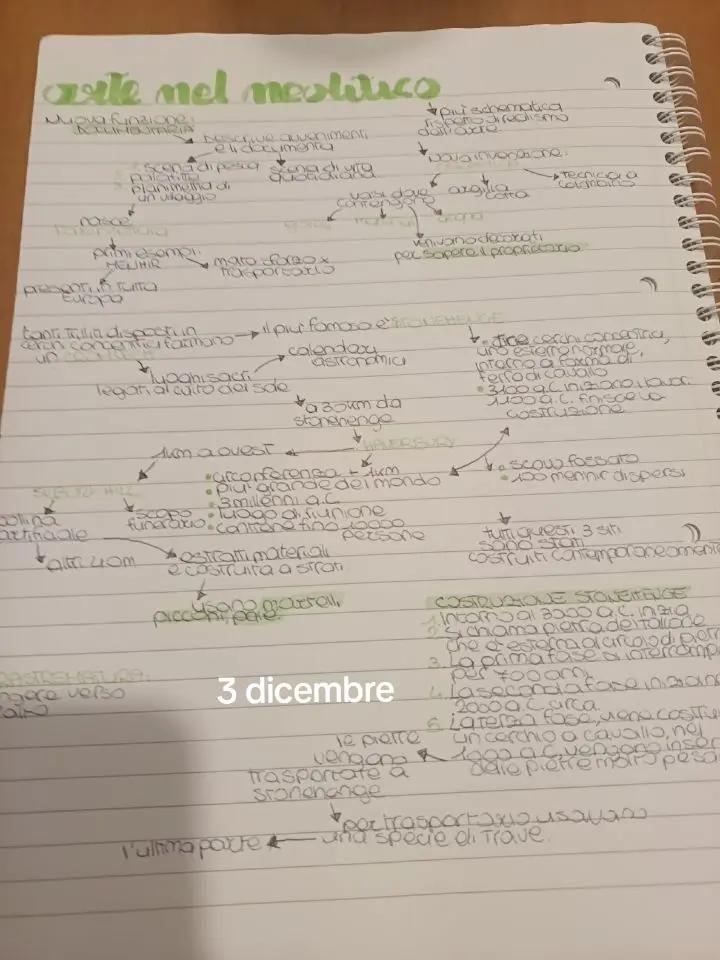 arte nel neolitico
nuova funzione:
DOCUMENTARIA
descrive avvenimenti
e li documenta
scena di pesca
scena di vita
quotidiana
planimetria di
un villaggio
nasce
primi esempi:
MENHIR
molto sforzo x
trasportarlo
presenti in tutta
Europa
più schematica
rispetto al realismo
dell'
nuova invenzione:
vasi dove
contengono
argilla
cotta
tecnica a
colombino
grano
venivano decorati
per sapere il proprietario
tanti triliti disposti in
cerchi concentrici formano
un
il più famoso è STONEHENGE
luoghi sacri
legati al culto del sole
calendari
astronomici
due cerchi concentrici,
uno esterno normale,
interno a forma di
ferro di cavallo
3100 a.C. iniziano i lavori
1100 a.C. finisce la
costruzione
a 30km da
stonehenge
1km a ovest
circonferenza + 1km
più grande del mondo
3 millenni a.C
luogo di riunione
contiene fino 10000
persone
scavo fossato
100 mennir dispersi
HILL
collina
artificiale
scopo
funerario
altri 40m
estratti materiali
e costruita a strati
usano martelli,
picconi, pale
tutti questi 3 siti
sono stati
costruiti contemporaneamente
COSTRUZIONE STONEHENGE
1. Intorno al 3000 a.C. inizia
2. si chiama pietra del tallone
che è esterna al circolo di pietr
3. La prima fase si interrompe
per 700 anni
4. La seconda fase inizia ne
2000 a.C. circa.
5. La terza fase, viene costrui
un cerchio a cavallo, nel
1000 a.C. vengono inser
delle pietre molto pesa
RASTREMATURA:
ngere verso
3 dicembre
le pietre
vengono
trasportate a
stonehenge
per trasportarlo usavano
una specie di trave.
l'ultima parte